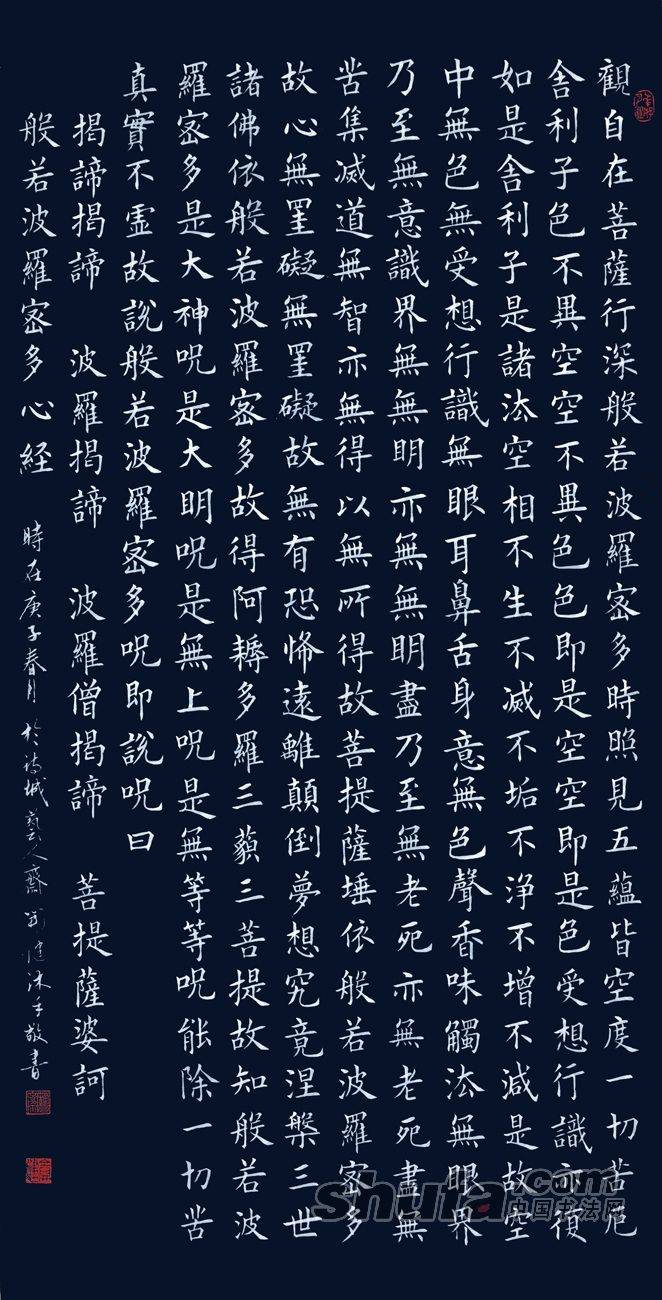 觀自在菩薩行深般若波羅密多時照見五蘊皆空度一切苦厄
舍利子色不異空空不異色色即是空空即是色受想行識亦復
如是舍利子是諸法空相不生不滅不垢不浄不增不減是故空
中無色無受想行識無眼耳鼻舌身意無色聲香味觸法無眼界
乃至無意識界無無明亦無無明盡乃至無老死亦無老死盡無
苦集滅道無智亦無得以無所得故菩提薩埵依般若波羅密多
故心無罣礙無罣礙故無有恐怖遠離顛倒夢想究竟涅槃三世
諸佛依般若波羅密多故得阿耨多羅三藐三菩提故知般若波
羅密多是大神呪是大明呪是無上呪是無等等呪能除一切苦
真實不虛故說般若波羅密多呪即說呪曰
揭諦揭諦 波羅揭諦 波羅僧揭諦 菩提薩婆訶
般若波羅密多心経
時在庚子春月於城藝人齋沐手敬書
shufa.com
中国书法网